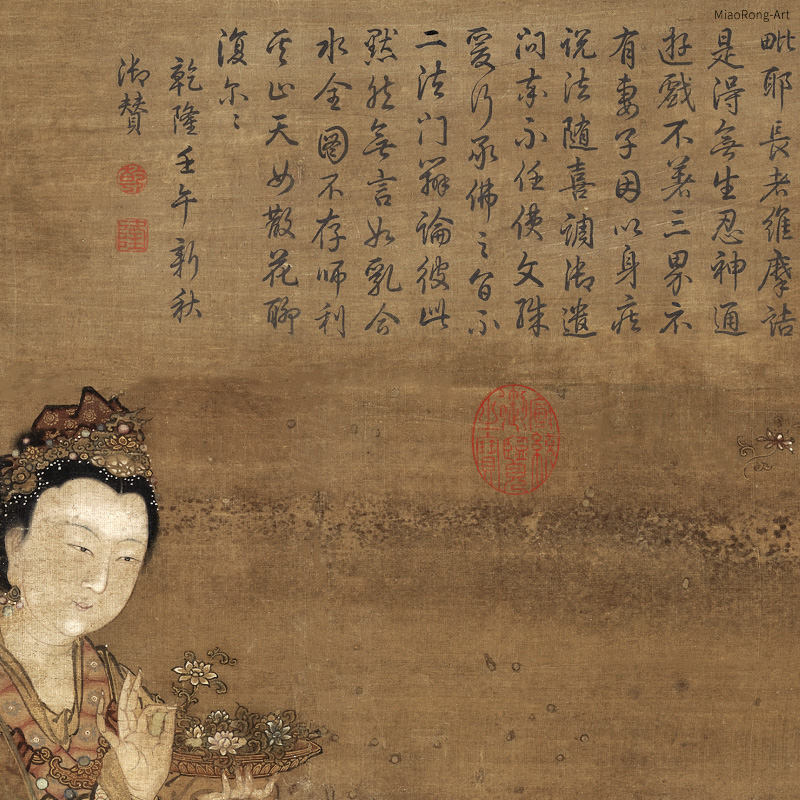 MiaoRong-Art
毗耶長者維摩詰
是得無生忍神通
遊戲不著三界示
有妻子因以身疾
說法隨喜調御遣
問率不任使文殊
爰行承佛之旨不
二法門辯論彼此
默然無言如乳会
水全圖不存師利
天女散花聊
復尔〻
乾隆壬午新秋
御贊
乾
隆